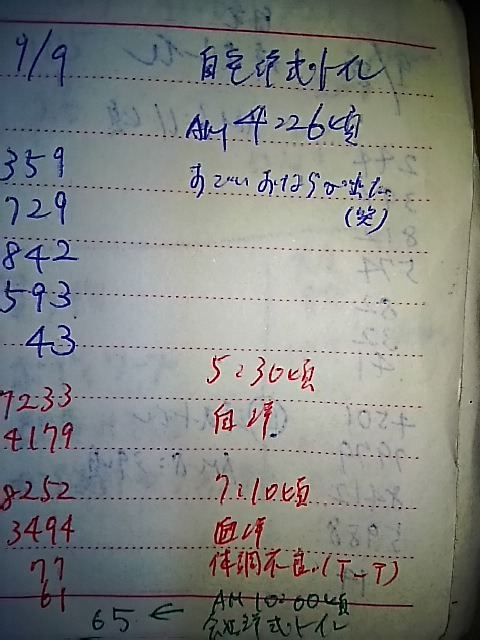 9/9 自宅洋式トイレ
AM 4:26頃
359 すごいおならが出た
729 (笑)
842
593
43
5:30頃
7233 自宅
4179
8252 7:10頃
3494
77 体調不良.(T-T)
61 AM 10:00頃
65 ← 会社洋式トイレ